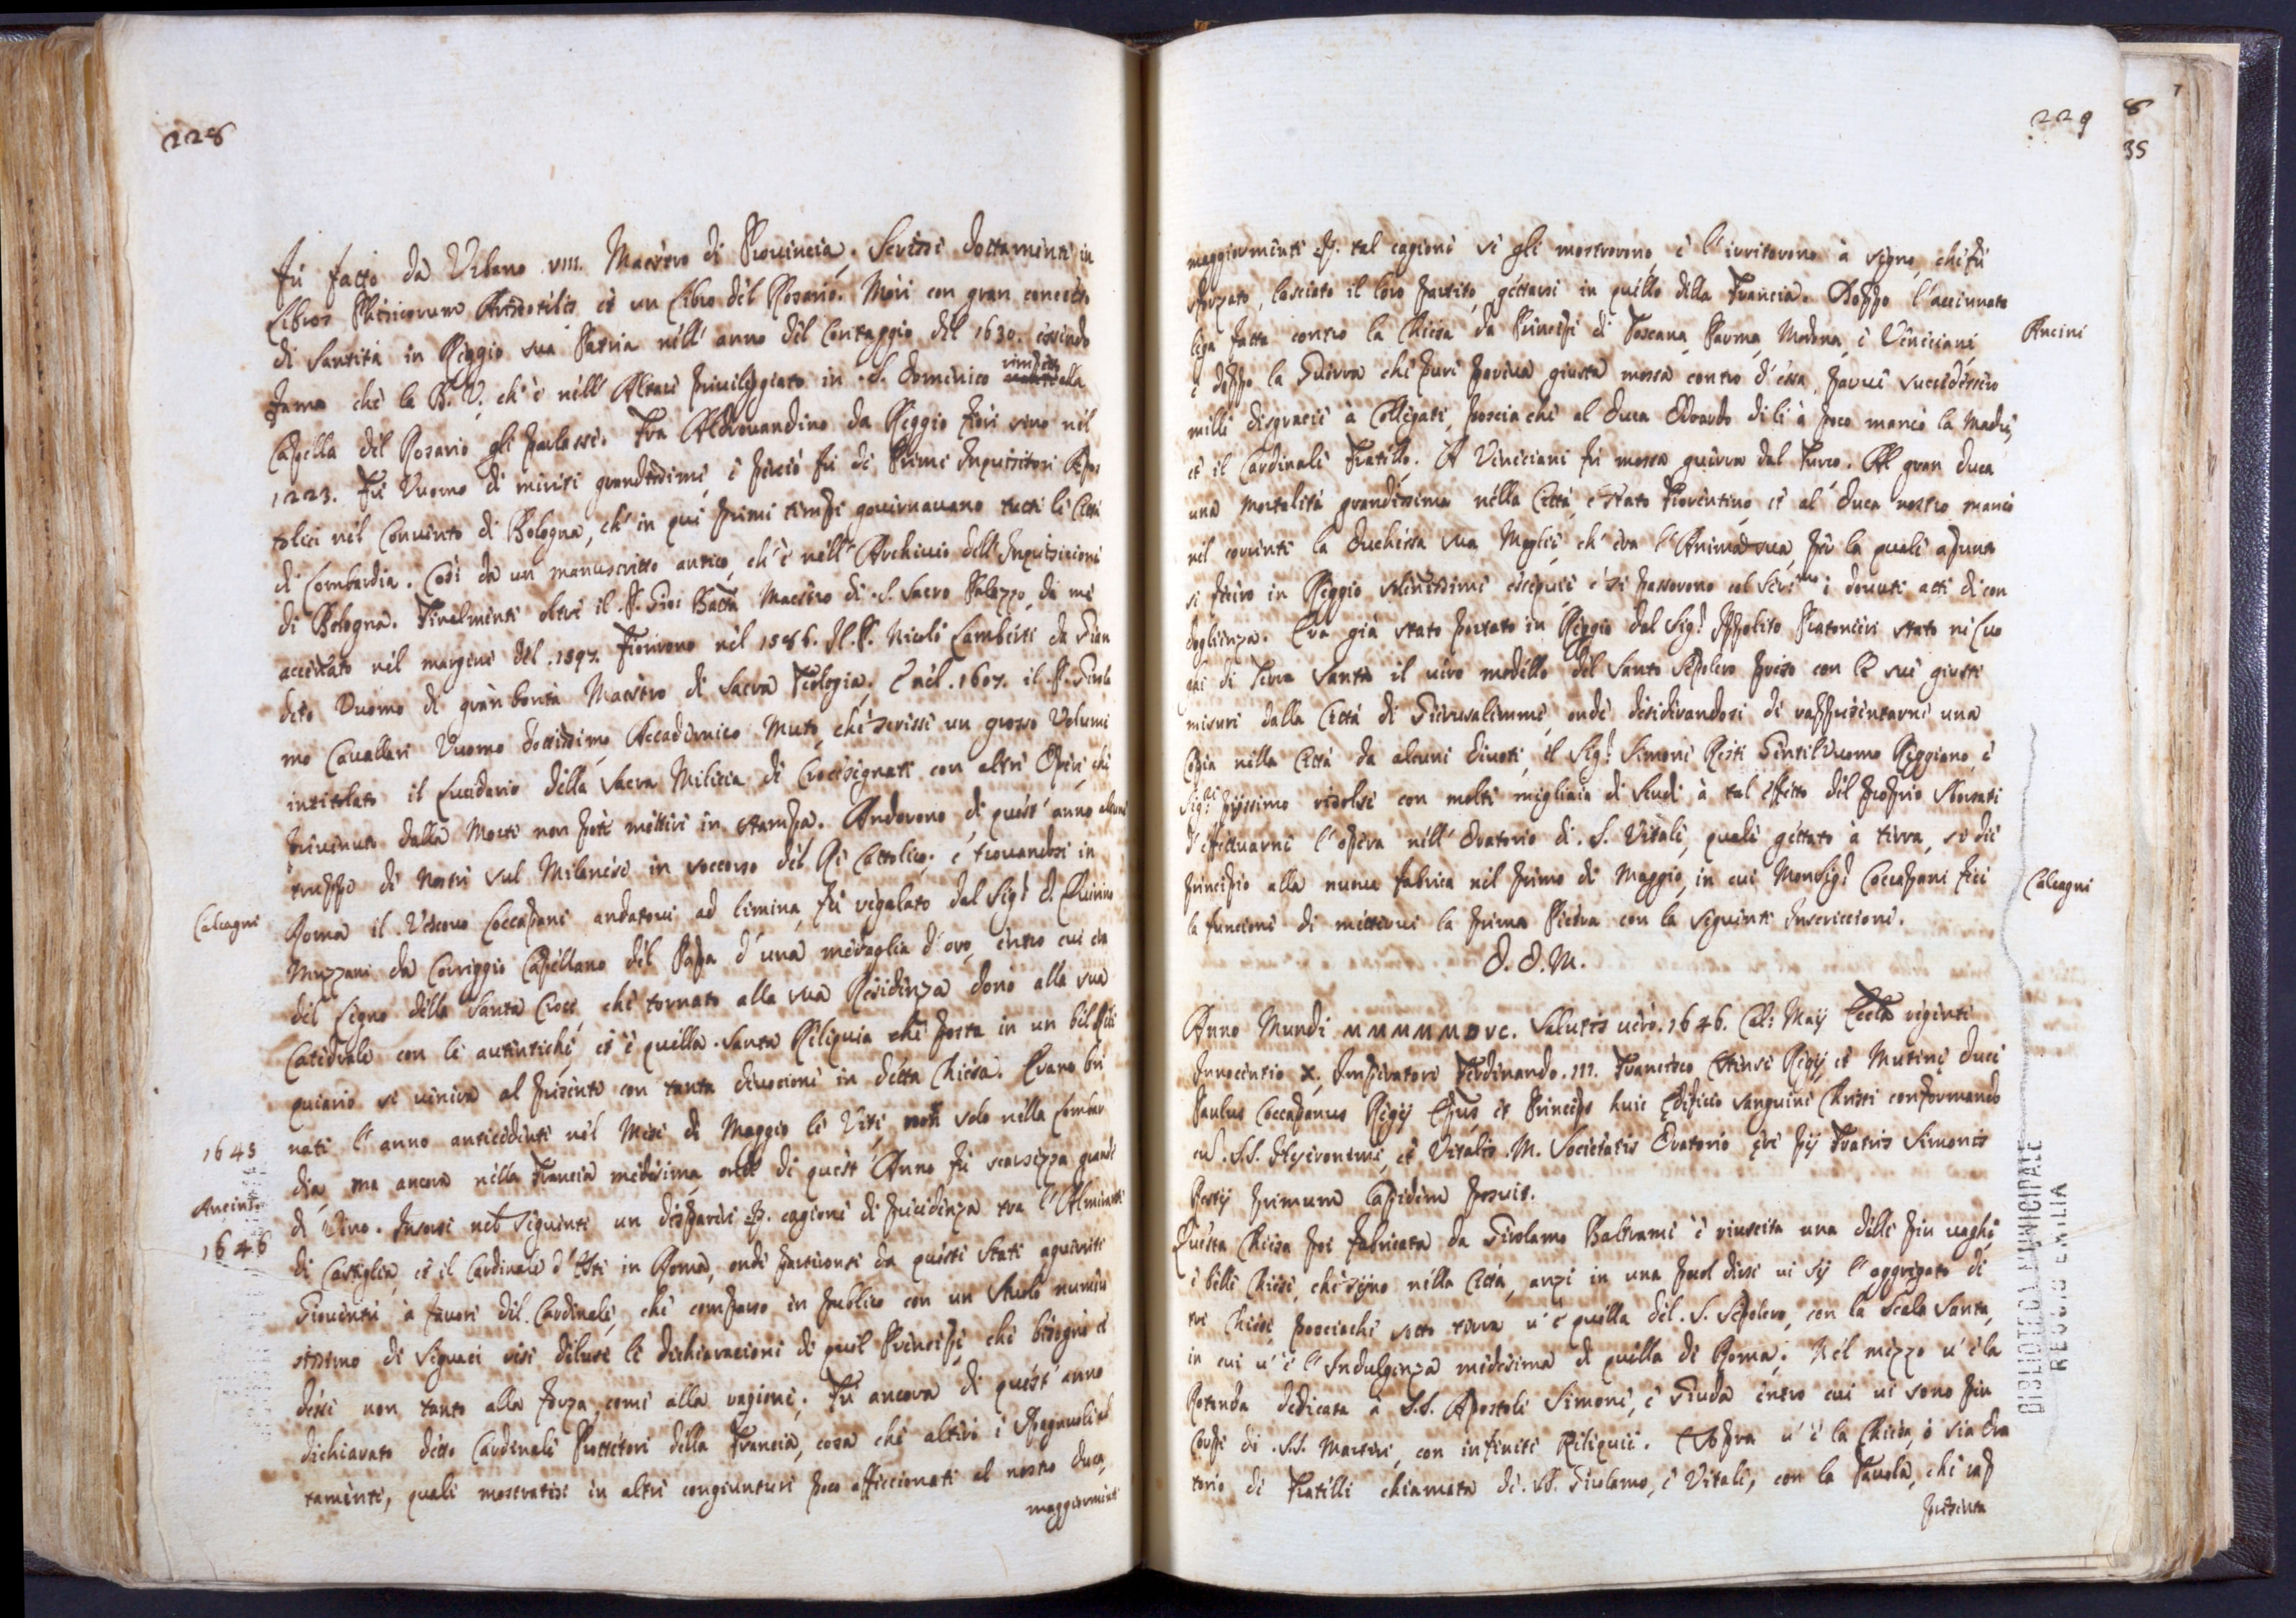 228
fù fatto da Urbano VIII. Maestro di Provincia. Scrisse dottamente in
Libros Phisicorum Aristotilis et un Libro del Rosario. Morì con gran concetto
di Santità in Reggio sua Patria nell' anno del Contaggio del 1630. essendo
fama che la B. V. ch' è nell' Altare privileggiato in S. Domenico rimpetto alla
Capella del Rosario gli parlasse. Fra Aldrovandino da Reggio fiorì sino nel
1223. Fù Vuomo di meriti grandissimi, e perciò fù de Primi Inquisitori Apos
tolici nel Convento di Bologna, ch' in que primi tempi governavano tutte le Città
di Lombardia. Così da un manuscritto antico, ch' è nell' Archivio dell' Inquisizione
di Bologna. Finalmente oltre il P. Gioi Batta Maestro di S. Sacro Palazzo, da me
accennato nel margine del 1597. fiorirono nel 1586. Il P. Nicolò Lamberti da Gian
deto Vuomo di gran bontà Maestro di Sacra Teologia. E nel 1607. il P. Girola
mo Cavallari Vuomo dottissimo Accademico Muto, che scrisse un grosso Volume
intitolato il Lucidario della Sacra Militia di Crocesignati con altre Opere, che
prevenuto dalla Morte non potè mettere in stampa. Andorono di quest' anno alcune
truppe di Nostri sul Milanese in soccorso del Rè Cattolico; e trovandosi in
Calcagni
Roma il Vescovo Coccapani andatovi ad limina, fù regalato dal Sig.r D. Quirino
Mazzani da Correggio Capellano del Papa d' una medaglia d' oro, entro cui era
del Legno della Santa Croce, che tornato alla sua Residenza donò alla sua
Catedrale con le autentiche, et è quella Santa Reliquia che posta in un bel Reli
quiario si venera al presente con tanta divozione in detta Chiesa. Erano bru
1645
nati l' anno antecedente nel Mese di Maggio le Viti non solo nella Lombar
dia, ma ancora nella Francia medesima, onde di quest' Anno fù scarsezza grande
Ancini
1646
di Vino. Insorse nel seguente un disparere p. cagione di precedenza tra l' Almirante
di Castiglia, et il Cardinale d' Este in Roma, onde partironsi da questi Stati aguerrite
Gioventù à favore del Cardinale, che comparso in publico con un Stuolo numero
sissimo di seguaci rese deluse le dichiarazioni di quel Prencipe, che bisognò ce
desse non tanto alla forza, come alla ragione. Fù ancora di quest' anno
dichiarato detto Cardinale Protettore della Francia, cosa che alterò i Spagnuoli al
tamente, quali mostratisi in altre congiunture poco affezionati al nostro Duca,
maggiormente
229
maggiormente p. tal cagione se gli mostrorono, e l' irritorono à segno, che fù
sforzato, lasciato il loro partito, gettarsi in quello della Francia. Doppo l' accennata
lega fatta contro la Chiesa da Prencipi di Toscana, Parma, Modena, e Veneziani,
Ancini
e doppo la Guerra che pure pareva giusta mossa contro d' essa, parve succedessero
mille disgrazie à Collegati, poscia che al Duca Odoardo di lì à poco mancò la Madre,
et il Cardinale Fratello. A Veneziani fù mossa guerra dal Turco. Al gran Duca
una mortalità grandissima nella Città, e Stato Fiorentino et al Duca nostro mancò
nel corrente la Duchessa sua Moglie, ch' era l' Anima sua, per la quale apunto
si fecero in Reggio solenissime essequie e si passorono col Ser.mo i dovuti atti di con
doglienza. Era già stato portato in Reggio dal Sig.r Ippolito Pratonieri stato ne Luo
ghi di Terra Santa il vero modello del Santo Sepolcro preso con le sue giuste
misure dalla Città di Gierusalemme, onde desiderandosi di rappresentarne una
Copia nella Città da alcuni divoti, il Sig.r Simone Resti Gentilvuomo Reggiano, e
Sig.re pijssimo risolse con molte migliaia di Scudi à tal effetto del proprio sborsati
d' effettuarne l' opera nell' Oratorio di S. Vitale, quale gettato à terra, si diè
principio alla nuova fabrica nel primo di Maggio, in cui Monsig.r Coccapani fece
Calcagni
la funzione di mettervi la prima Pietra con la seguente Inscrizzione.
D. O. M.
Anno Mundi MMMMMDVC. Salutis vero 1646. Cal: Maij Eccla regente
Innocentio X. Imperatore Ferdinando III. Francisco Estense Regij, et Mutinę Duce
Paulus Coccapanus Regij Epus, et Princeps huic Edificio sanguini Christi conformando
cū SS. Hyeronimi, et Vitalis M. Societatis Oratorio ęre pij Fratris Simonis
Restij primum Lapidem posuit.
Questa Chiesa poi fabricata da Girolamo Beltrami è riuscita una delle piu vaghe,
e belle Chiese, che sijno nella Città, anzi in una puol dirsi vi sij l' aggregato di
tre Chiese, poscioche sotto terra v' è quella del S. Sepolcro, con la Scala Santa,
in cui v' è l' Indulgenza medesima di quella di Roma. Nel mezzo v' è la
Rotonda dedicata à S.S. Apostoli Simone, e Giuda entro cui vi sono piu
Corpi di SS. Martiri, con infinite Reliquie. E sopra v' è la Chiesa, ò sia Ora
torio di Fratelli chiamata di SS. Girolamo, e Vitale, con la Tavola, che rap
presenta
BIBLIOTECA MUNICIPALE
REGGIO EMILIA
8
35